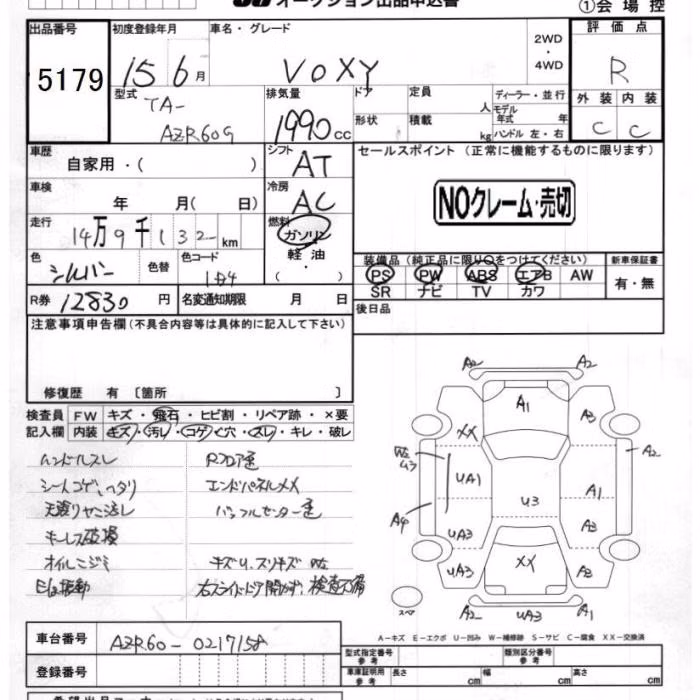 オークション出品申込書
①会場控
出品番号 初度登録年月 車名・グレード 2WD ・ 4WD 評価点
5179 15 6月 VOXY R
型式 排気量 ドア 定員 人 ディーラー・並行 外装 内装
TA- モデル年式 年
AZR60G 1990cc 形状 積載 kg ハンドル 左・右 C C
車歴 シフト セールスポイント (正常に機能するものに限ります)
自家用・( ) AT
車検 冷房 NOクレーム・売切
年 月( 日) AC
走行 燃料
14万9千132km ガソリン
色 色替 色コード 軽油・ 装備品(純正品に限り○をつけてください) 新車保証書
シルバー 1D4 ( ) PS PW ABS エアB AW 有・無
R券 12830円 名変通知期限 月 日 SR ナビ TV カワ
注意事項申告欄(不具合内容等は具体的に記入して下さい) 後日品
修復歴 有 〔箇所 〕
検査員 FW キズ・飛石・ヒビ割・リペア跡・×要
記入欄 内装 キズ・汚レ・コゲ・穴・スレ・キレ・破レ
ハンドルスレ Rフロア歪
シートコゲ、ヘタリ エンドパネルメメ
天張リヤニ汚レ バックフルセンター歪
キーレス破損
オイルニジミ キズU、スリキズ
E/g振動 右スライドドア開かず、検査不備
A2 A2
A1
XX A3
U3 A2
UA1 A1
U3
A4 A3
UA3
UA3 XX A3
スペア A2 UA3 A1
A-キズ E-エクボ U-凹み W-補修跡 S-サビ C-腐食 XX-交換済
車台番号 AZR60-0217158
型式指定番号 参考 類別区分番号 参考
登録番号 車庫証明用 参考 長さ cm 幅 cm 高さ cm